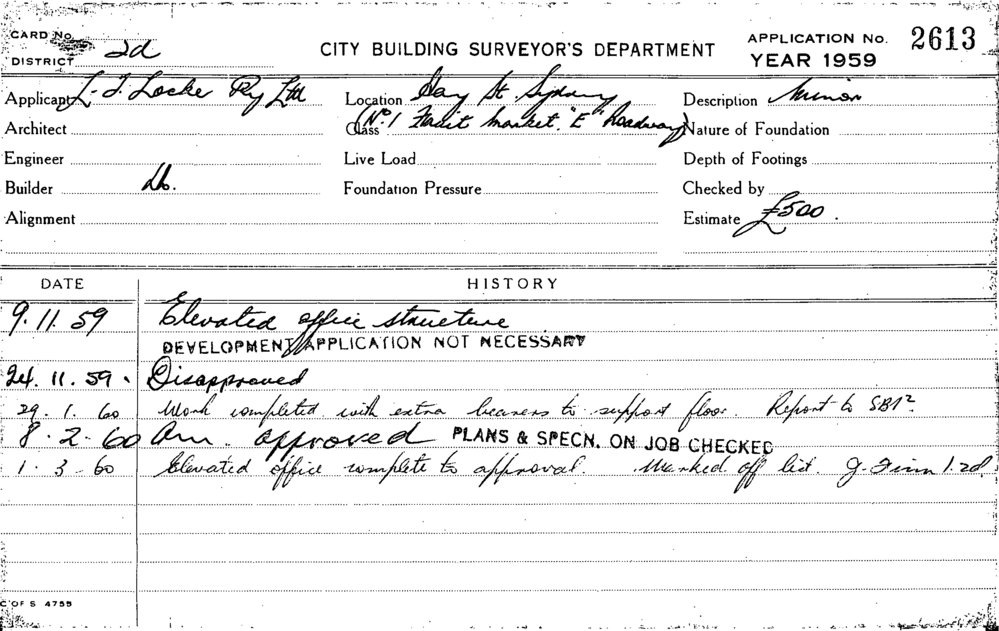 CARD No.
DISTRICT 2d
CITY BUILDING SURVEYOR'S DEPARTMENT
APPLICATION No. 2613
YEAR 1959
Applicant L. J. Locke Pty Ltd
Location Hay St. Sydney
Description Minor
Architect
Class (No. 1 Fruit Market. "E" Roadway)
Nature of Foundation
Engineer
Live Load
Depth of Footings
Builder Do.
Foundation Pressure
Checked by
Alignment
Estimate £500.
DATE HISTORY
9.11.59 Elevated office structure
DEVELOPMENT APPLICATION NOT NECESSARY
24.11.59. Disapproved
29.1.60 Work completed with extra bearers to support floor Report to
8.2.60 Am. approved PLANS & SPECN. ON JOB CHECKED
1.3.60 Elevated office complete to approval. Marked off list. J. Finn 1.2d.
C OF S 4755